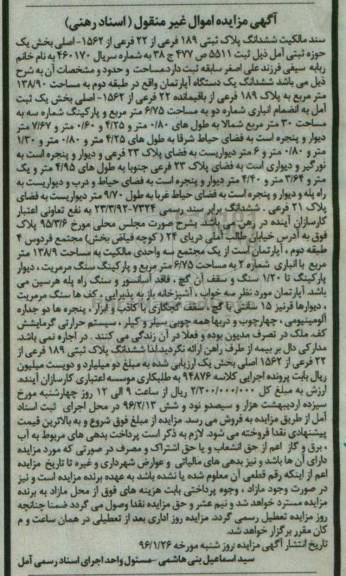 آگهی مزایده اموال غیر منقول ( اسناد رهنی )
سند مالکیت ششدانگ پلاک ثبتی ۱۸۹ فرعی از ۲۲ فرعی از ۱۵۶۲- اصلی بخش یک
حوزه ثبتی آمل ذیل ثبت ۵۵۱۱ ص ۴۷۷ ج ۳۸ به شماره سریال ۴۶۰۱۷۰ به نام خانم
ربابه سیفی فرزند علی اصغر سابقه ثبت دارد.مساحت و حدود و مشخصات آن به شرح
ذیل می باشد ششدانگ یک دستگاه آپارتمان واقع در طبقه دوم به مساحت ۱۳۸/۹۰
متر مربع به پلاک ۱۸۹ فرعی از باقیمانده ۲۲ فرعی از ۱۵۶۲- اصلی بخش یک ثبت
آمل به انضمام انباری شماره دو به مساحت ۶/۷۵ متر مربع و پارکینگ شماره سه به
مساحت ۳۰ متر مربع شمالا به طول های ۰/۸۰ متر و ۴/۲۵ و ۰/۶۰ متر و ۷/۶۷ متر
دیوار و پنجره است به فضای حیاط شرقا به طول های ۴/۲۵ متر و ۰/۸۰ متر و ۱/۳۰
متر و ۰/۸۰ متر و ۶ متر دیواریست به فضای پلاک ۲۳ فرعی و دیوار و پنجره است به
نورگیر و دیواری است به فضای پلاک ۲۳ فرعی جنوبا به طول های ۴/۹۵ متر و یک
متر و ۳/۶۴ متر و ۴/۴۰ متر دیوار و پنجره است به فضای حیاط و درب و دیواریست به
راه پله و دیوار و پنجره است به فضای حیاط غربا به طول ۹/۷۰ متر دیواریست به فضای
پلاک ۲۱ فرعی . ششدانگ برابر سند رسمی ۷۳۲۴-۲۳/۳/۹۲ به نفع تعاونی اعتبار
کارسازان آینده در رهن می باشد. بشرح صورت مجلس محلی مورخ ۹۵/۳/۶ پلاک
فوق به آدرس خیابان طالب آملی دریای ۲۴ ( کوچه فیاض بخش) مجتمع فردوس ۴
طبقه دوم ، آپارتمان است از یک مجتمع سه واحدی مالکیت به مساحت ۱۳۸/۹ متر
مربع با انباری شماره ۲ به مساحت ۶/۷۵ متر مربع و پارکینگ سنگ مرمریت ، دیوار
پارکینگ تا ۱/۲۰ سنگ و سقف آن گچ ، فاقد آسانسور و سنگ راه پله هرسین می
باشد. آپارتمان مورد نظر سه خواب ، آشپزخانه باز به پذیرایی ، کف ها سنگ مرمریت
، دیوارها قرنیز ۱۵ سانتی با گچ ،سقف گچکاری با کاذب و ابزار ، پنجره ها دو جداره
آلومینیومی ، چهارچوب و دربها همه چوبی سیلر و کیلر ، سیستم حرارتی گرمایش
کف. ملک در تصرف مدیون بوده و فعلا در آن زندگی می کنند . در اجاره نمی باشد.
مدارکی دال بر بیمه از طرف راهن ارائه نگردید.لذا ششدانگ پلاک ثبتی ۱۸۹ فرعی از
۲۲ فرعی از ۱۵۶۲ اصلی بخش یک ارزیابی شده به مبلغ دو میلیارد و دویست میلیون
ریال بابت پرونده اجرایی کلاسه ۹۴۸۷۶ به طلبکاری موسسه اعتباری کارسازان آینده،
ارزش به مبلغ کل ۲/۲۰۰/۰۰۰/۰۰۰ ریال از ساعت ۹ الی ۱۲ روز چهارشنبه مورخ
سیزده اردیبهشت هزار و سیصدو نود و شش ۹۶/۲/۱۳ در محل اجرای ثبت اسناد
آمل از طریق مزایده به فروش می رسد. مزایده از مبلغ فوق شروع و به بالاترین قیمت
پیشنهادی نقدا فروخته می شود. لازم به ذکر است پرداخت بدهی های مربوط به آب
، برق و گاز اعم از حق انشعاب و یا حق اشتراک و مصرف در صورتی که مورد مزایده
دارای آن ها باشد و نیز بدهی های مالیاتی و عوارض شهرداری و غیره تا تاریخ مزایده
اعم از اینکه رقم قطعی آن معلوم شده یا نشده باشد به عهده برنده مزایده است و نیز
در صورت وجود مازاد ، وجوه پرداختی بابت هزینه های فوق از محل مازاد به برنده
مزایده مسترد خواهد شد و نیم عشر و حق مزایده نقدا وصول می گردد ضمنا چنانچه
روز مزایده تعطیل رسمی گردد، مزایده روز اداری بعد از تعطیلی در همان ساعت و م
کان مقرر برگزار خواهد شد.
تاریخ انتشار آگهی مزایده :روز شنبه مورخه ۹۶/۱/۲۶
سید اسماعیل بنی هاشمی -مسئول واحد اجرای اسناد رسمی آمل